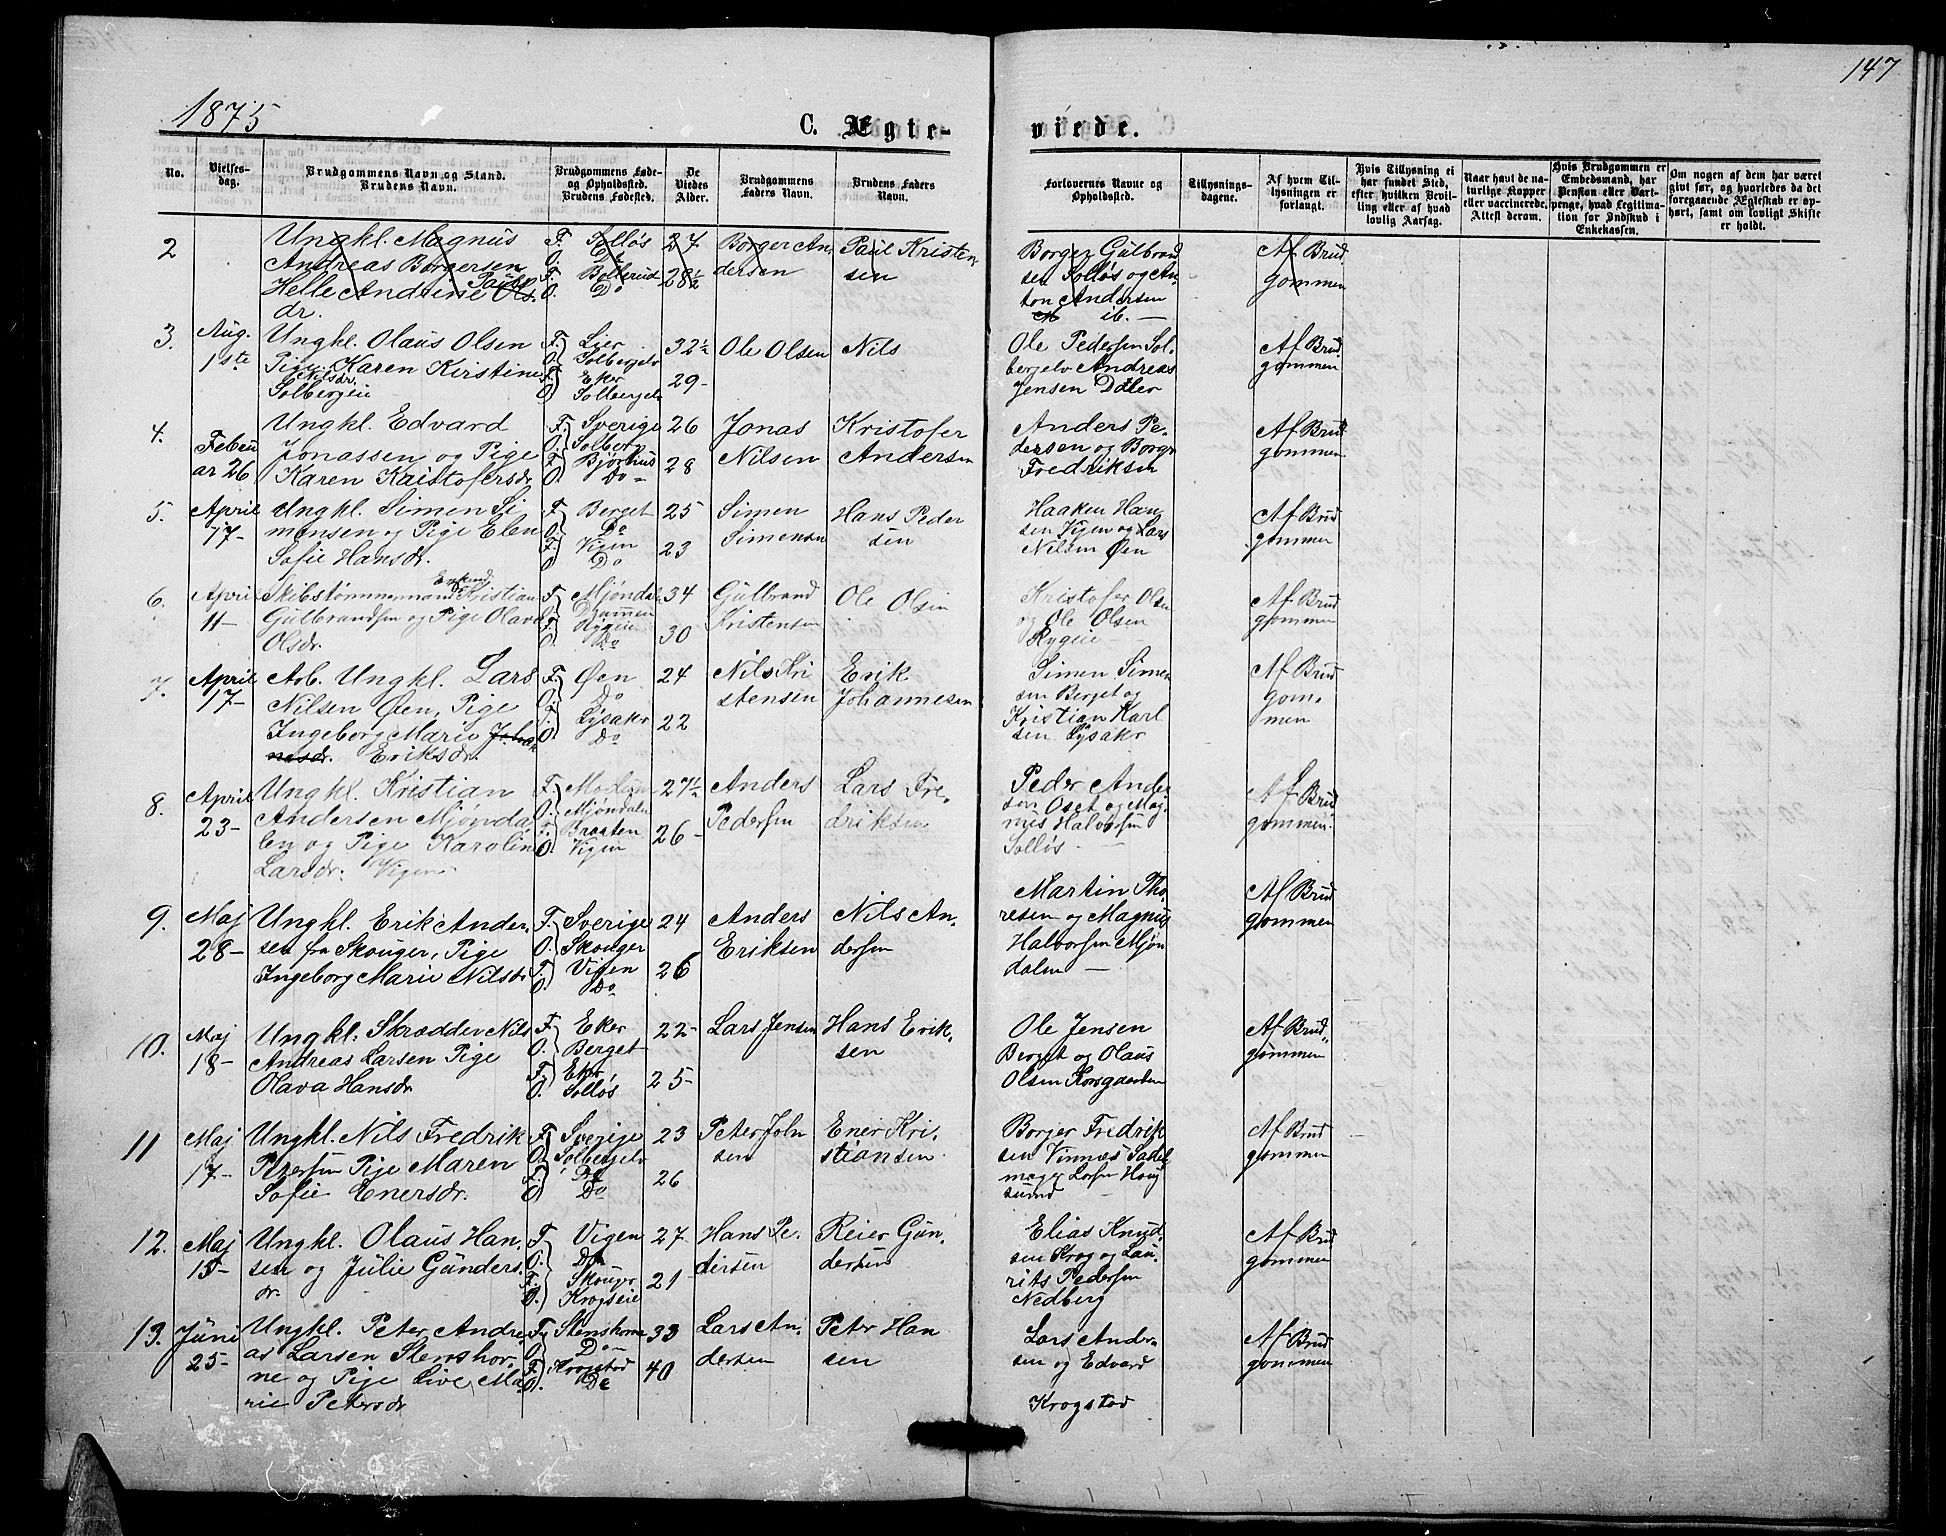 147
1875
C. Ægte-
viede.
No.
Vielses-
dag.
Brudgommens Navn og Stand.
Brudens Navn.
Brudgommens Føde-
og Opholdsted.
Brudens Fødested.
De
Viedes
Alder.
Brudgommens
Faders Navn.
Brudens Faders
Navn.
Forlovernes Navne og
Opholdsted.
Tillysnings-
dagene.
Af hvem Til-
lysningen er
forlangt.
Hvis Tillysning ei
har fundet Sted,
efter hvilken Bevil-
ling eller af hvad
lovlig Aarsag.
Naar havt de na-
turlige Kopper
eller vaccinerede.
Attest derom.
Hvis Brudgommen er
Embedsmand, har
Pension eller Vart-
penge, hvad Legitima-
tion for Indskud i
Enkekassen.
Om nogen af dem har været
givt før, og hvorledes da det
foregaaende Ægteskab er op-
hørt, samt om lovligt Skifte
er holdt.
2
Ungkl. Magnus
Andreas Borgersen
Helle Andrine Pauls
dr.
F. Solløs
O. Do
F. Bollerud
O. Do
27
28½
Borger An-
dersen
Paul Kristen-
sen
Borger Gulbrand
sen Solløs og An-
ton Andersen
ib. —
Af Brud
gommen
3.
Aug.
1ste
Ungkl. Olaus Olsen
Pige Karen Kirstine
Nilsdr.
Solbergeie
F. Lier
O. Solbergelv
F. Eker
O. Solbergelv
32½
29-
Ole Olsen
Nils
Ole Pedersen Sol-
bergelv Andreas
Jensen Daler
Af Brud
gommen
4.
Febru
ar 26
Ungkl. Edvard
Jonassen og Pige
Karen Kristofersdr
F. Sverige
O. Solberg
F. Bjørkhus
O. Do
26
28
Jonas
Nilsen
Kristofer
Andersen
Anders Pe-
dersen og Borgr
Fredriksen
Af Brud
gommen
5.
April
17-
Ungkl. Simen Si
mensen og Pige Elen
Sofie Hansdr.
F. Berget
O. Do
F. Vigen
O. Do
25
23
Simen
Simensen
Hans Peder
sen
Haaken Han
sen Vigen og Lars
Nilsen Øen
Af Brud
gommen
6.
April
11-
Enkemd
Skibstømmermand Kristian
Gulbrandsen og Pige Olava
Olsdr.
F. Mjøndal
O. Drammen
F. Rygeie
O. Do
34
30
Gulbrand
Kristensen
Ole Olsen
Kristofer Olsen
og Ole Olsen
Rygeie
Af Brud
gommen
7.
April
17-
Arb. Ungkl. Lars
Nilsen Øen, Pige
Ingeborg Marie Johan
nesdr. Eriksdr.
F. Øen
O. Do
F. Lysakr
O. Do
24
22
Nils Kri
stensen
Erik
Johannesen
Simen Simen
sen Berget og
Kristian Karl
sen Lysakr
Af Brud
gom-
men
8.
April
23-
Ungkl. Kristian
Andersen Mjønda
len og Pige Karolin
Larsdr. Vigen
F. Modum
O. Mjøndalen
F. Braaten
O. Vigen
27½
26-
Anders
Pedersen
Lars Fre-
driksen
Peder Ander
sen Oset og Mag
nus Halvorsen
Solløs
Af Brud
gommen
9.
Maj
28-
Ungkl. Erik Ander-
sen fra Skouger, Pige
Ingeborg Marie Nilsdr
F. Sverige
O. Skouger
F. Vigen
O. Do
24
26
Anders
Eriksen
Nils An-
dersen
Martin Tho-
resen og Magnus
Halvorsen Mjøn
dalen —
Af Brud
gommen
10.
Maj
18-
Ungkl. Skrædder Nils
Andreas Larsen Pige
Olava Hansdr
F. Eker
O. Berget
F. Eker
O. Solløs
22-
25-
Lars Jensen
Hans Erik-
sen
Ole Jensen
Berget og Olaus
Olsen Korsgaarden
Af Brud-
gommen
11
Maj
17-
Ungkl. Nils Fredrik
Petersen Pige Maren
Sofie Enersdr.
F. Sverige
O. Solbergelv
F. Do
O. Do
23
26
Peter John
sen
Ener Kri-
stiansen
Borger Fredrik
sen Vinnæs Sadel
mager Larsen Houg
sund
Af Brud
gommen
12.
Maj
15-
Ungkl. Olaus Han-
sen og Julie Gunders-
dr.
F. Vigen
O. Do
F. Skouger
O. Krogseie
27
21
Hans Pe-
dersen
Reier Gun-
dersen
Elias Knud
sen Krog og Lau-
rits Pedersen
Nedberg
Af Brud
gommen
13.
Juni
25-
Ungkl. Peter Andre-
as Larsen Stenshor-
ne og Pige Live Ma-
rie Petersdr
F. Stenshorne
O. Do
F. Krogstad
O. Do
33
40
Lars An-
dersen
Peter Han
sen
Lars Ander-
sen og Edvard
Krogstad
Af Brud
gommen